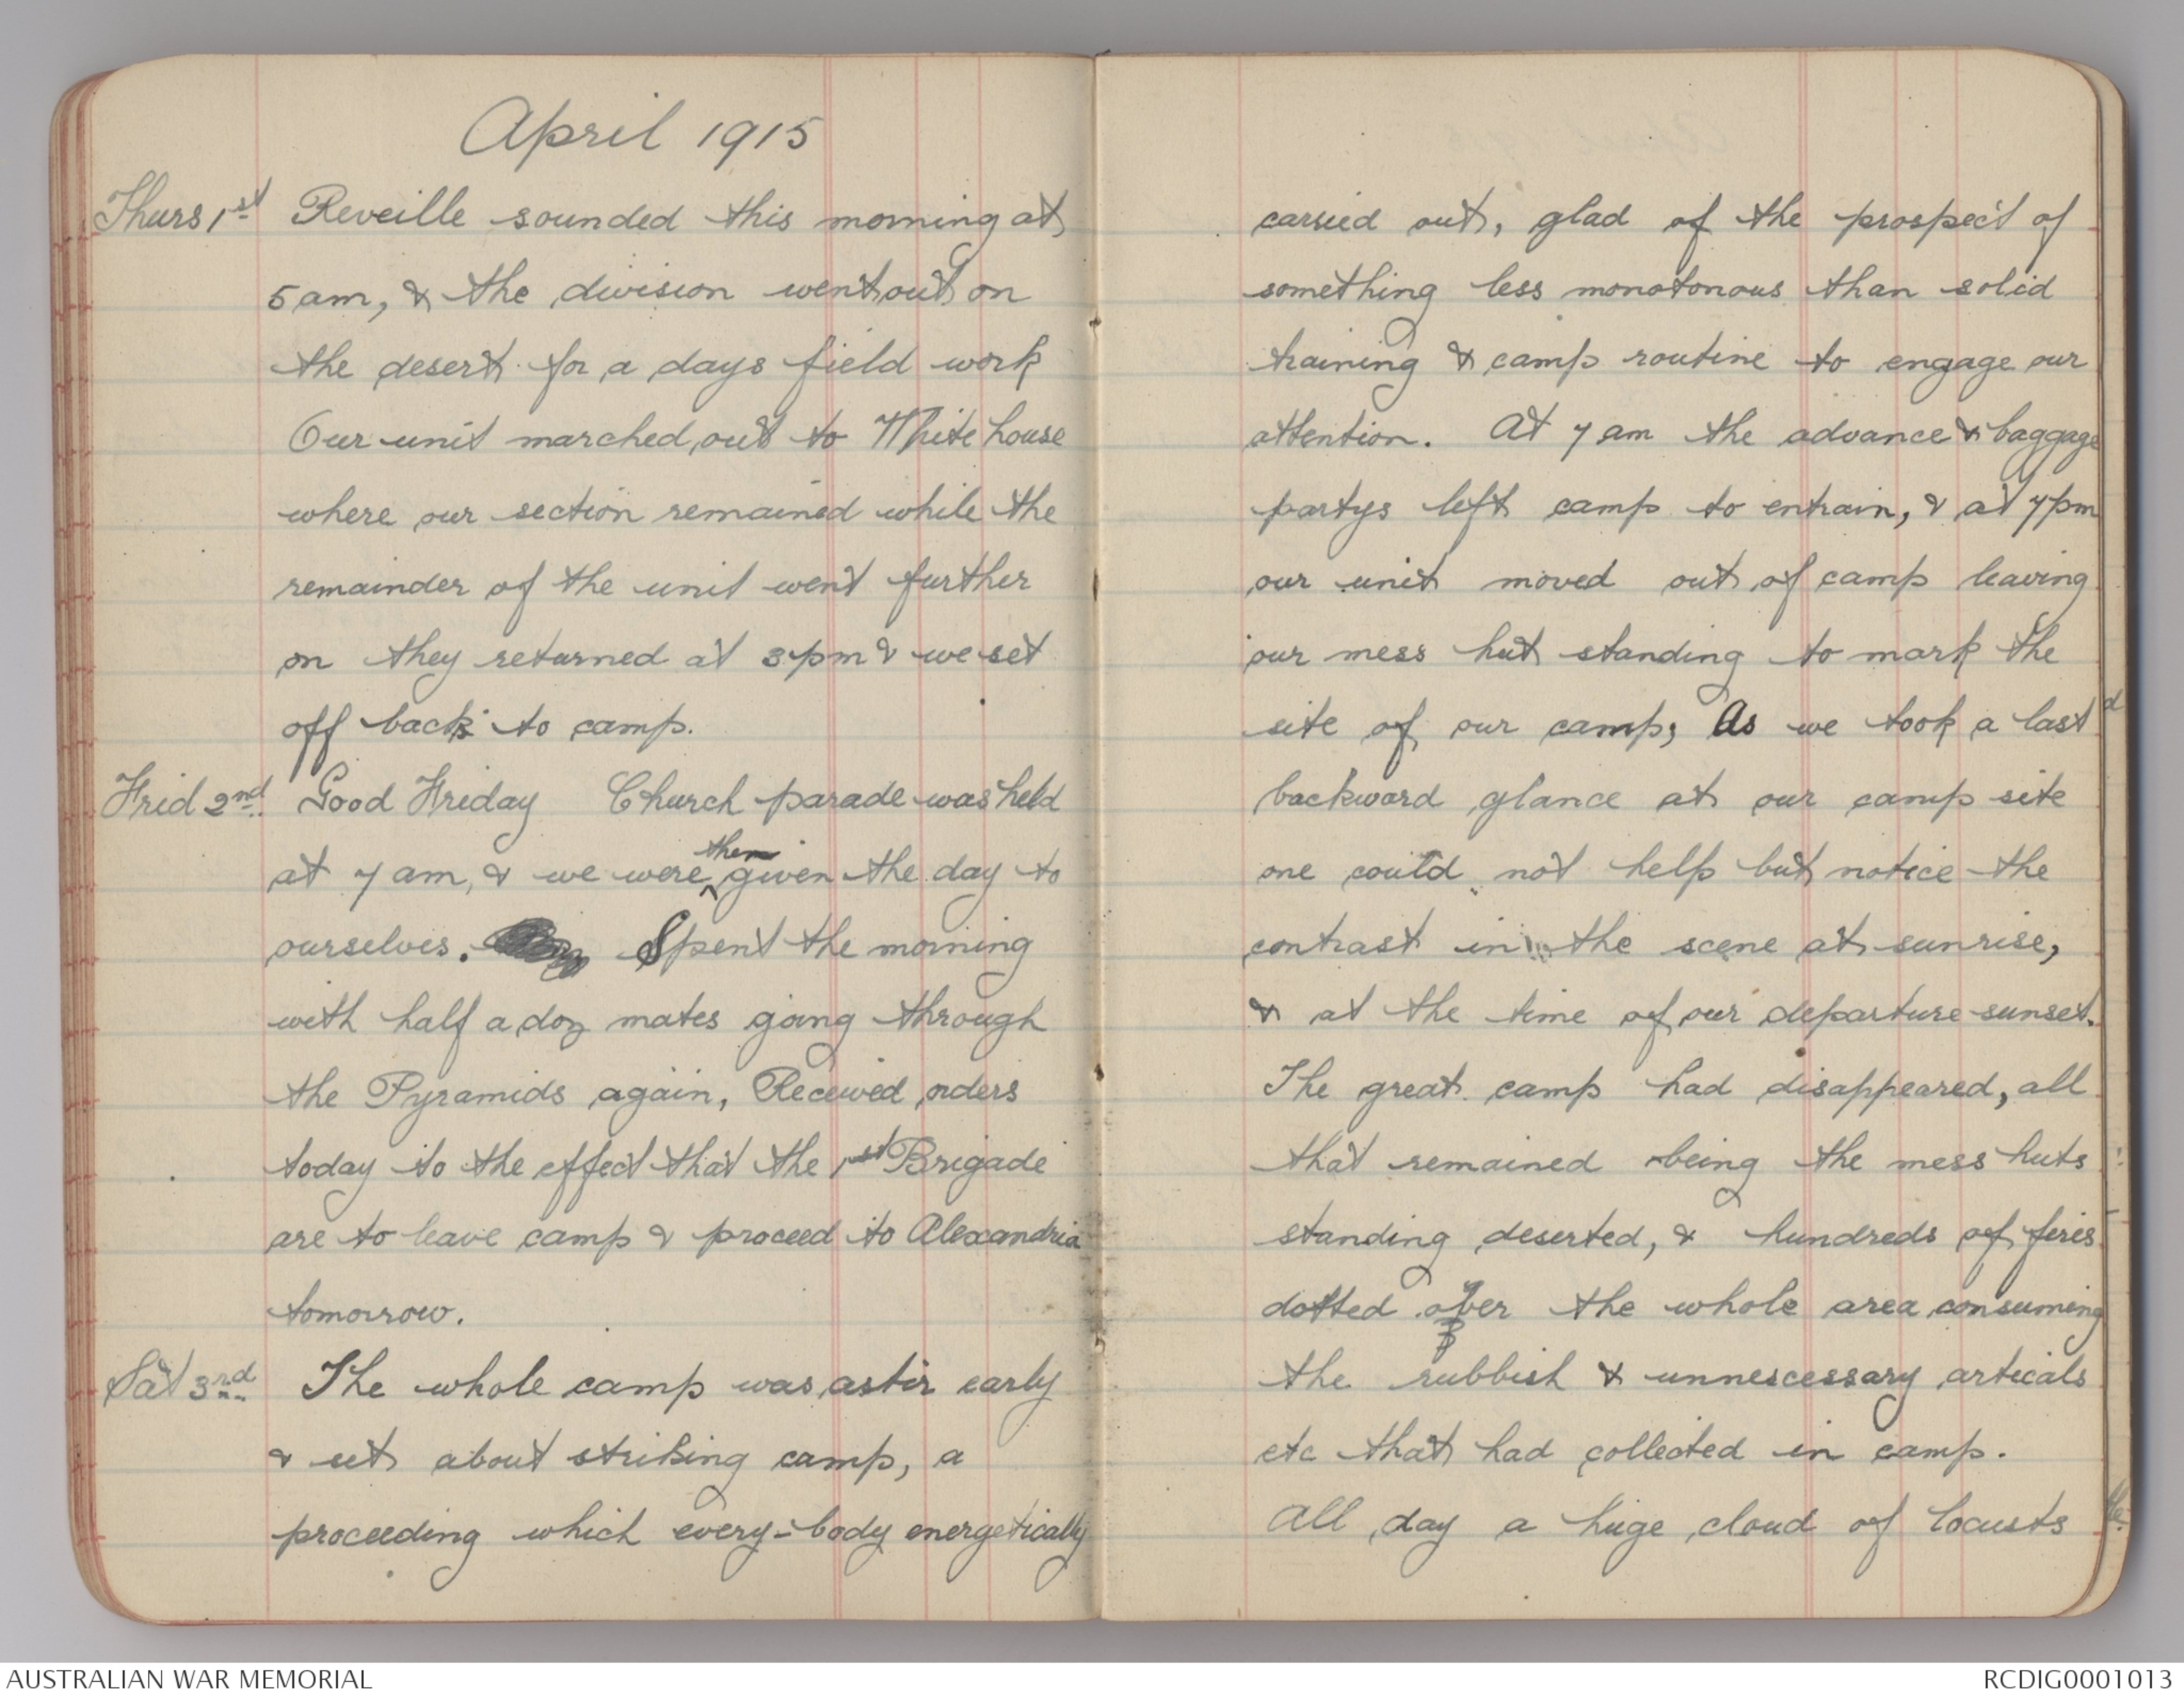 April 1915
Thurs 1st Reveille sounded this morning at
5 am, & the division went out on
the desert for a days field work
Our unit marched out to White house
where our section remained while the
remainder of the unit went further
on they returned at 3.pm & we set
off back to camp.
Frid 2nd. Good Friday Church parade was held
at 7 am, & we were then given the day to
ourselves. Spent the morning
with half a doz mates going through
the Pyramids again, Received orders
today to the effect that the 1st Brigade
are to leave camp & proceed to Alexandria
tomorrow.
Sat 3rd The whole camp was astir early
& set about striking camp, a
proceeding which every-body energetically
carried out, glad of the prospect of
something less monotonous than solid
training & camp routine to engage our
attention. At 7 am the advance & baggage
partys left camp to entrain, & at 7pm
our unit moved out of camp leaving
our mess hut standing to mark the
site of our camp; As we took a last
backward glance at our camp site
one could not help but notice the
contrast in the scene at sunrise,
& at the time of our departure sunset.
The great camp had disappeared, all
that remained being the mess huts
standing deserted, & hundreds of fires
dotted over the whole area consuming
the rubbish & unnescessary articals
etc that had collected in camp.
All day a huge cloud of locusts
AUSTRALIAN WAR MEMORIAL
RCDIG0001013